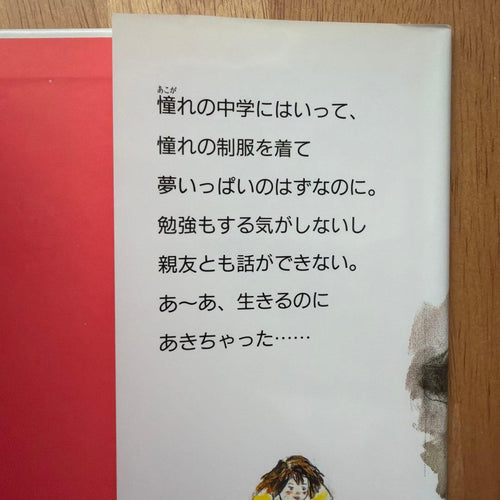 あこが
憧れの中学にはいって、
憧れの制服を着て
夢いっぱいのはずなのに。
勉強もする気がしないし
親友とも話ができない。
あ〜あ、生きるのに
あきちゃった……